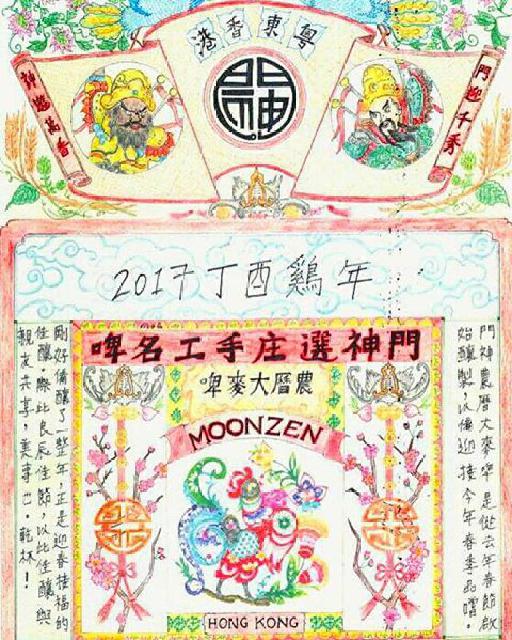 粵東香港
門神
2017丁酉雞年
門神選庄手工名啤
農曆大麥啤
MOONZEN
HONG KONG
門神農曆大麥啤是從去年春節啟
始釀製,以備迎接今年春季品嚐。
剛好備釀了一整年,正是迎春接福的
佳釀。際此良辰佳節,以此佳釀與
親友共享,美事也,乾杯!